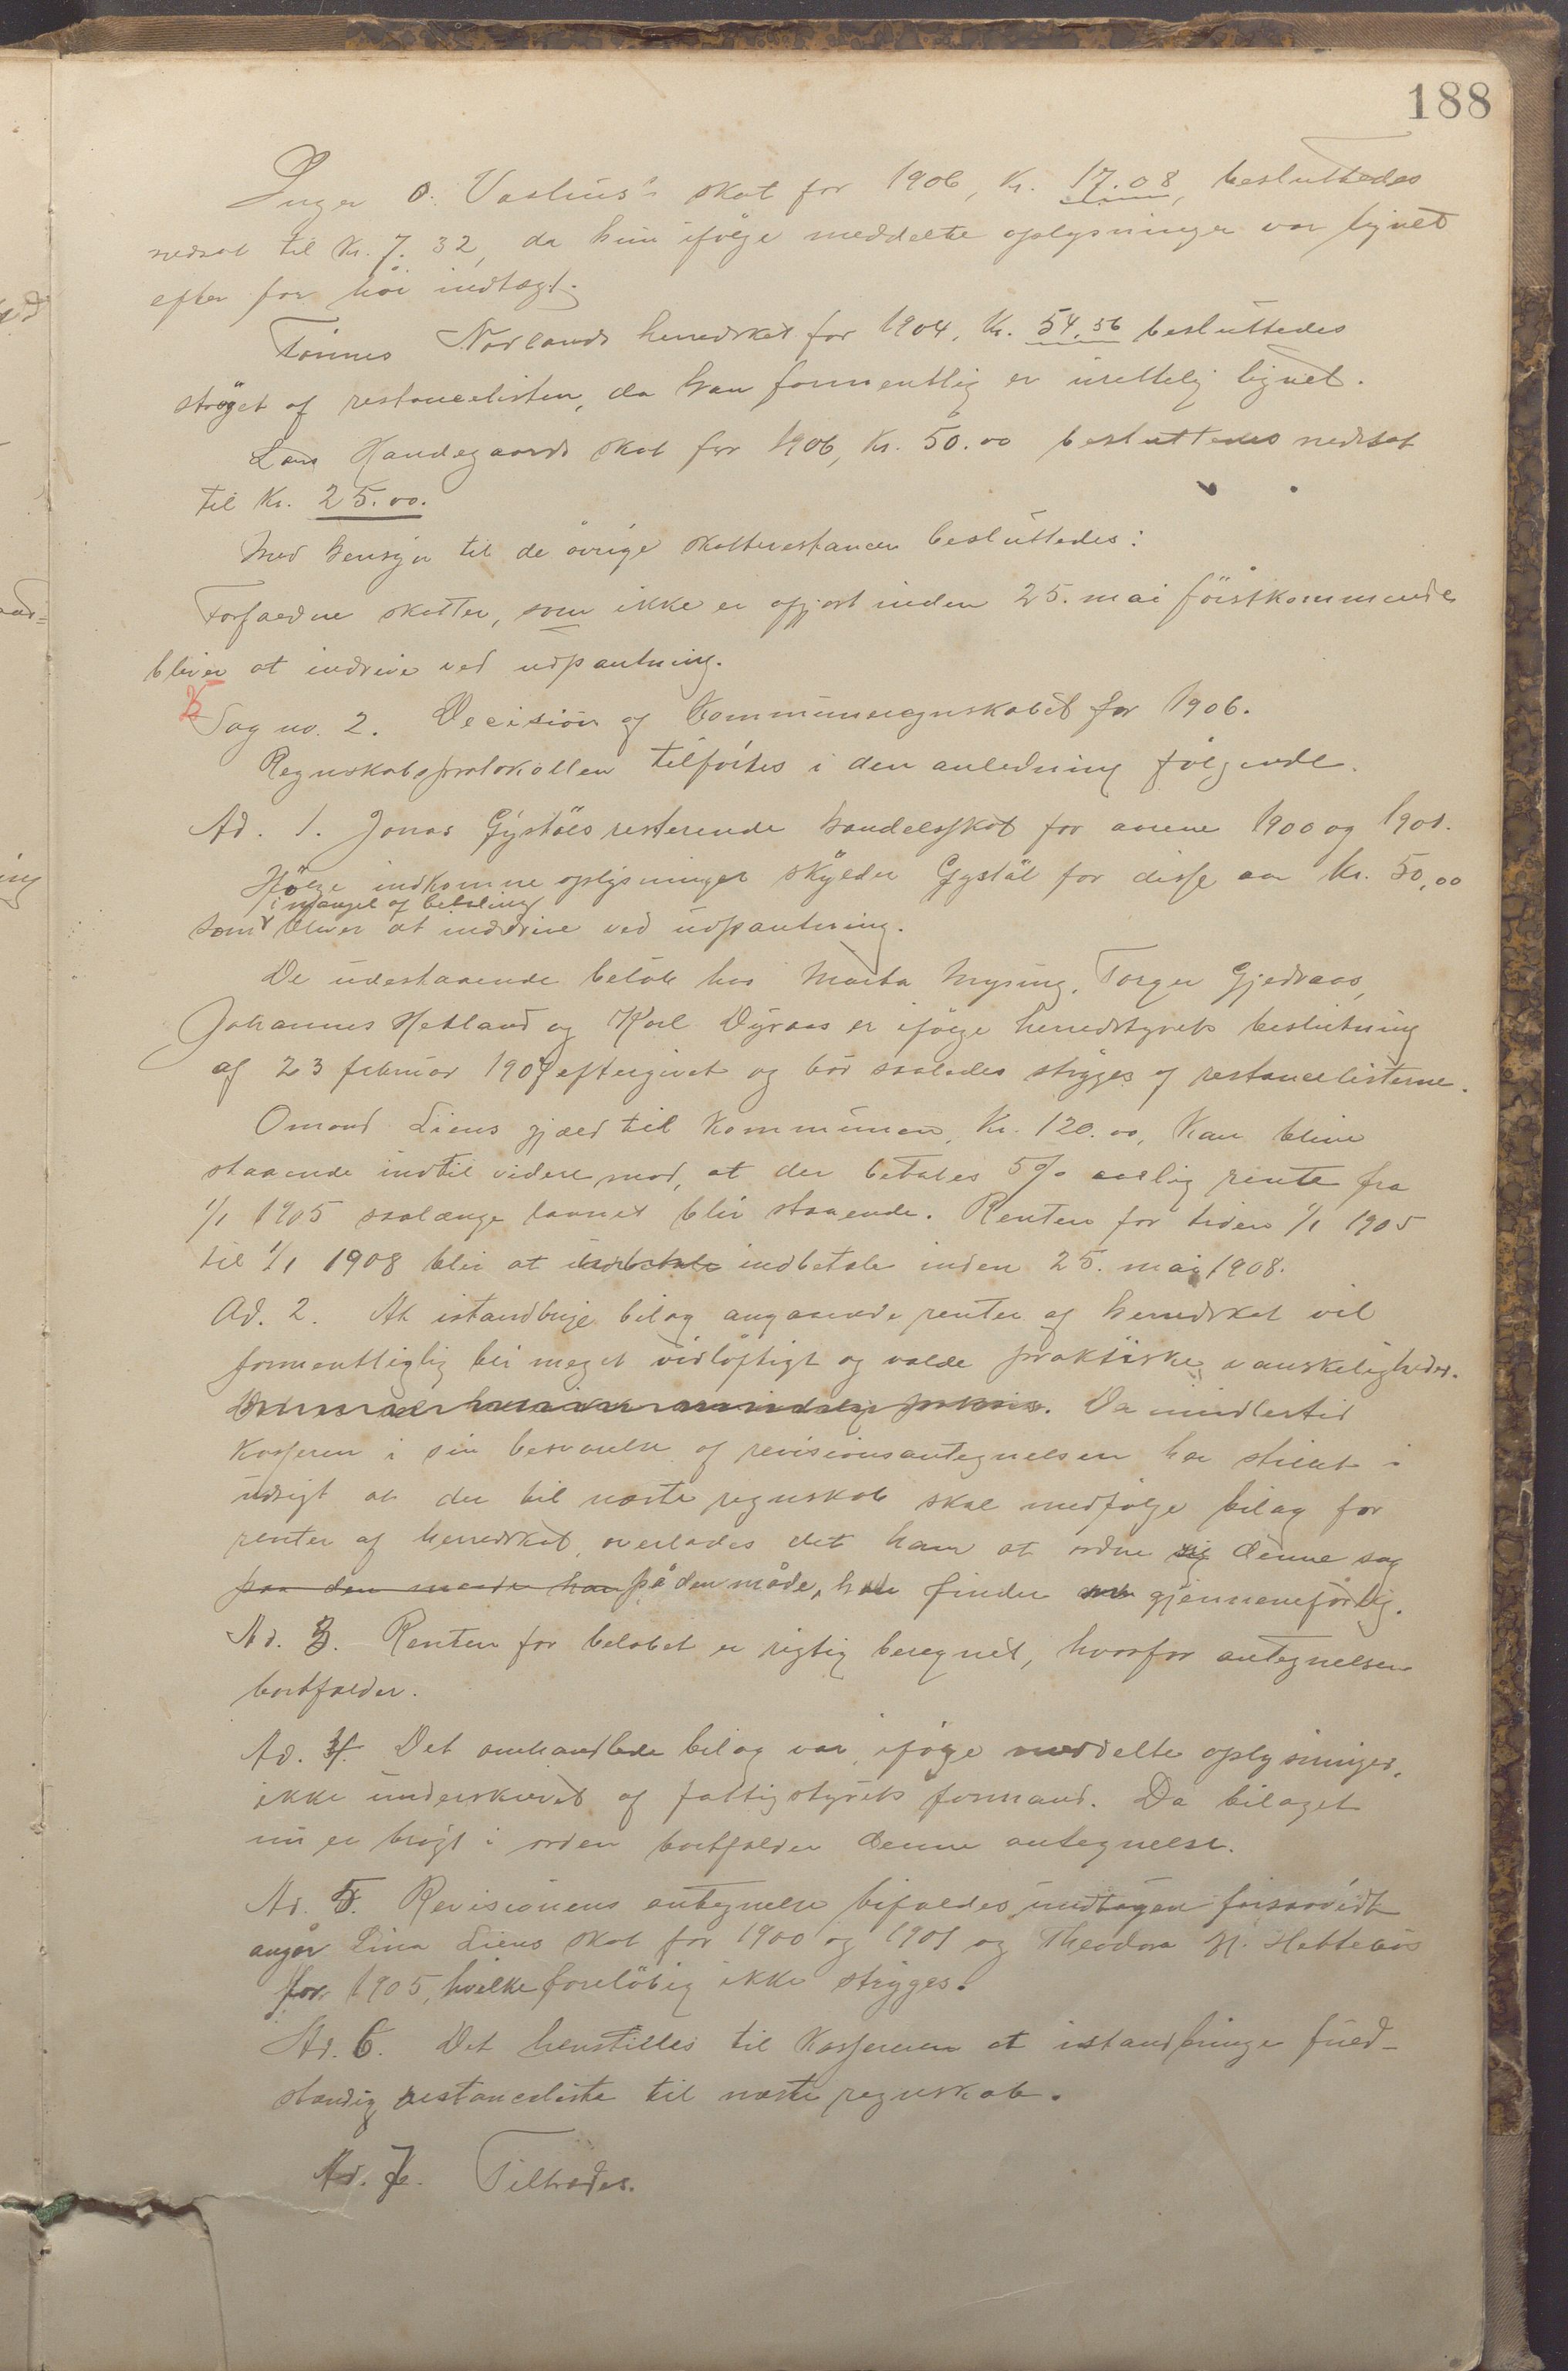 188
Inger O. Vaslius's skat for 1906, Kr. 17.08, besluttedes
nedsat til Kr. 7.32, da hun ifølge meddelte oplysninger var lignet
efter for høi indtægt.
Tønnes Nærlands herredskat for 1904, Kr. 54,56 besluttedes
strøget af restancelisten, da han formentlig er urettelig lignet.
Lars Handegaards skat for 1906, Kr. 50.00 besluttedes nedsat
til Kr. 25.00.
Med hensyn til de øvrige skatterestancer besluttedes:
Forfaldne skatter, som ikke er opgjort inden 25. mai førstkommende
bliver at inddrive ved udpantning.
Sag no. 2. Decision af Kommuneregnskabet for 1906.
Regnskabsprotokollen tilførtes i den anledning følgende.
Ad. 1. Jonas Gystøls resterende handelsskat for aarene 1900 og 1901.
Ifølge indkomne oplysninger skylder Gystøl for disse aar Kr. 50,00
i mangel af betaling
som bliver at inddrive ved udpantning.
De udestaaende beløb hos Marta Mysing, Torger Gjedraas,
Johannes Hetland og Karl Dyraas er ifølge herredstyrets beslutning
af 23 februar 1907 eftergivet og bør saaledes stryges af restancelisterne.
Omund Liens gjæld til Kommunen, Kr. 120.00, kan blive
staaende indtil videre mod, at der betales 5% aarlig rente fra
1/1 1905 saalænge laanet blir staaende. Renten for tiden 1/1 1905
til 1/1 1908 blir at indbetale indbetale inden 25. mai 1908.
Ad. 2. At istandbringe bilag angaaende renter af herredskat vil
formentliglig bli meget vidløftigt og volde praktiske vanskeligheder.
Da imidlertid
Kasseren i sin besvarelse af revisionsantegnelsen har stillet i
udsigt at der til næste regnskab skal medfølge bilag for
renter af herredskat, overlades det ham at ordne sig denne sag
paa den maade han på den måde, han finder gjennemførlig.
Ad. 3. Renten for beløbet er rigtig beregnet, hvorfor antegnelsen
bortfalder.
Ad. 4. Det omhandlede bilag var, ifølge meddelte oplysninger,
ikke underskrevet af fattigstyrets formand. Da bilaget
nu er bragt i orden bortfalder denne antegnelse.
Ad. 5. Revisionens antegnelse bifaldes undtagen forsaavidt
angår Lina Liens skat for 1900 og 1901 og Theodora N. Hettebøs
for 1905, hvilke foreløbig ikke stryges.
Ad. 6. Det henstilles til Kassereren at istandbringe fuld-
stændig restanceliste til næste regnskab.
Ad. 7. Tiltrædes.